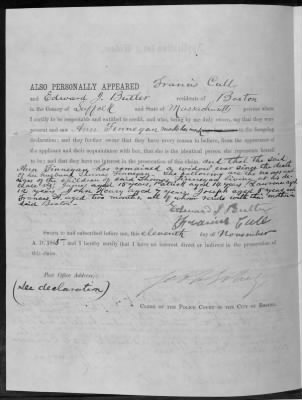 ALSO PERSONALLY APPEARED Francis Cull
and Edward J. Butler residents of Boston
in the County of Suffolk and State of Massachusetts persons whom
I certify to be respectable and entitled to credit, and who, being by me duly sworn, say that they were
present and saw Ann Finnegan make her mark to the foregoing
declaration; and they further swear that they have every reason to believe, from the appearance of
the applicant and their acquaintance with her, that she is the identical person she represents herself
to be; and that they have no interest in the prosecution of this claim. and that the said
Ann Finnegan has remained a widow since the death
of her husband The following are the names and
ages of the children of said Finnegan living at his de-
cease aged 15 years Patrick aged 14 years
12 years John Henry aged 7 years Joseph aged years
Francis H. aged two months, all of whom reside with their mother
said Boston.
Edward J. Butler
Francis Cull
Sworn to and subscribed before me, this eleventh day of November
A. D. 1865 and I hereby certify that I have no interest direct or indirect in the prosecution of
this claim.
Post Office Address:
(See declaration)
CLERK OF THE POLICE COURT IN THE CITY OF BOSTON.